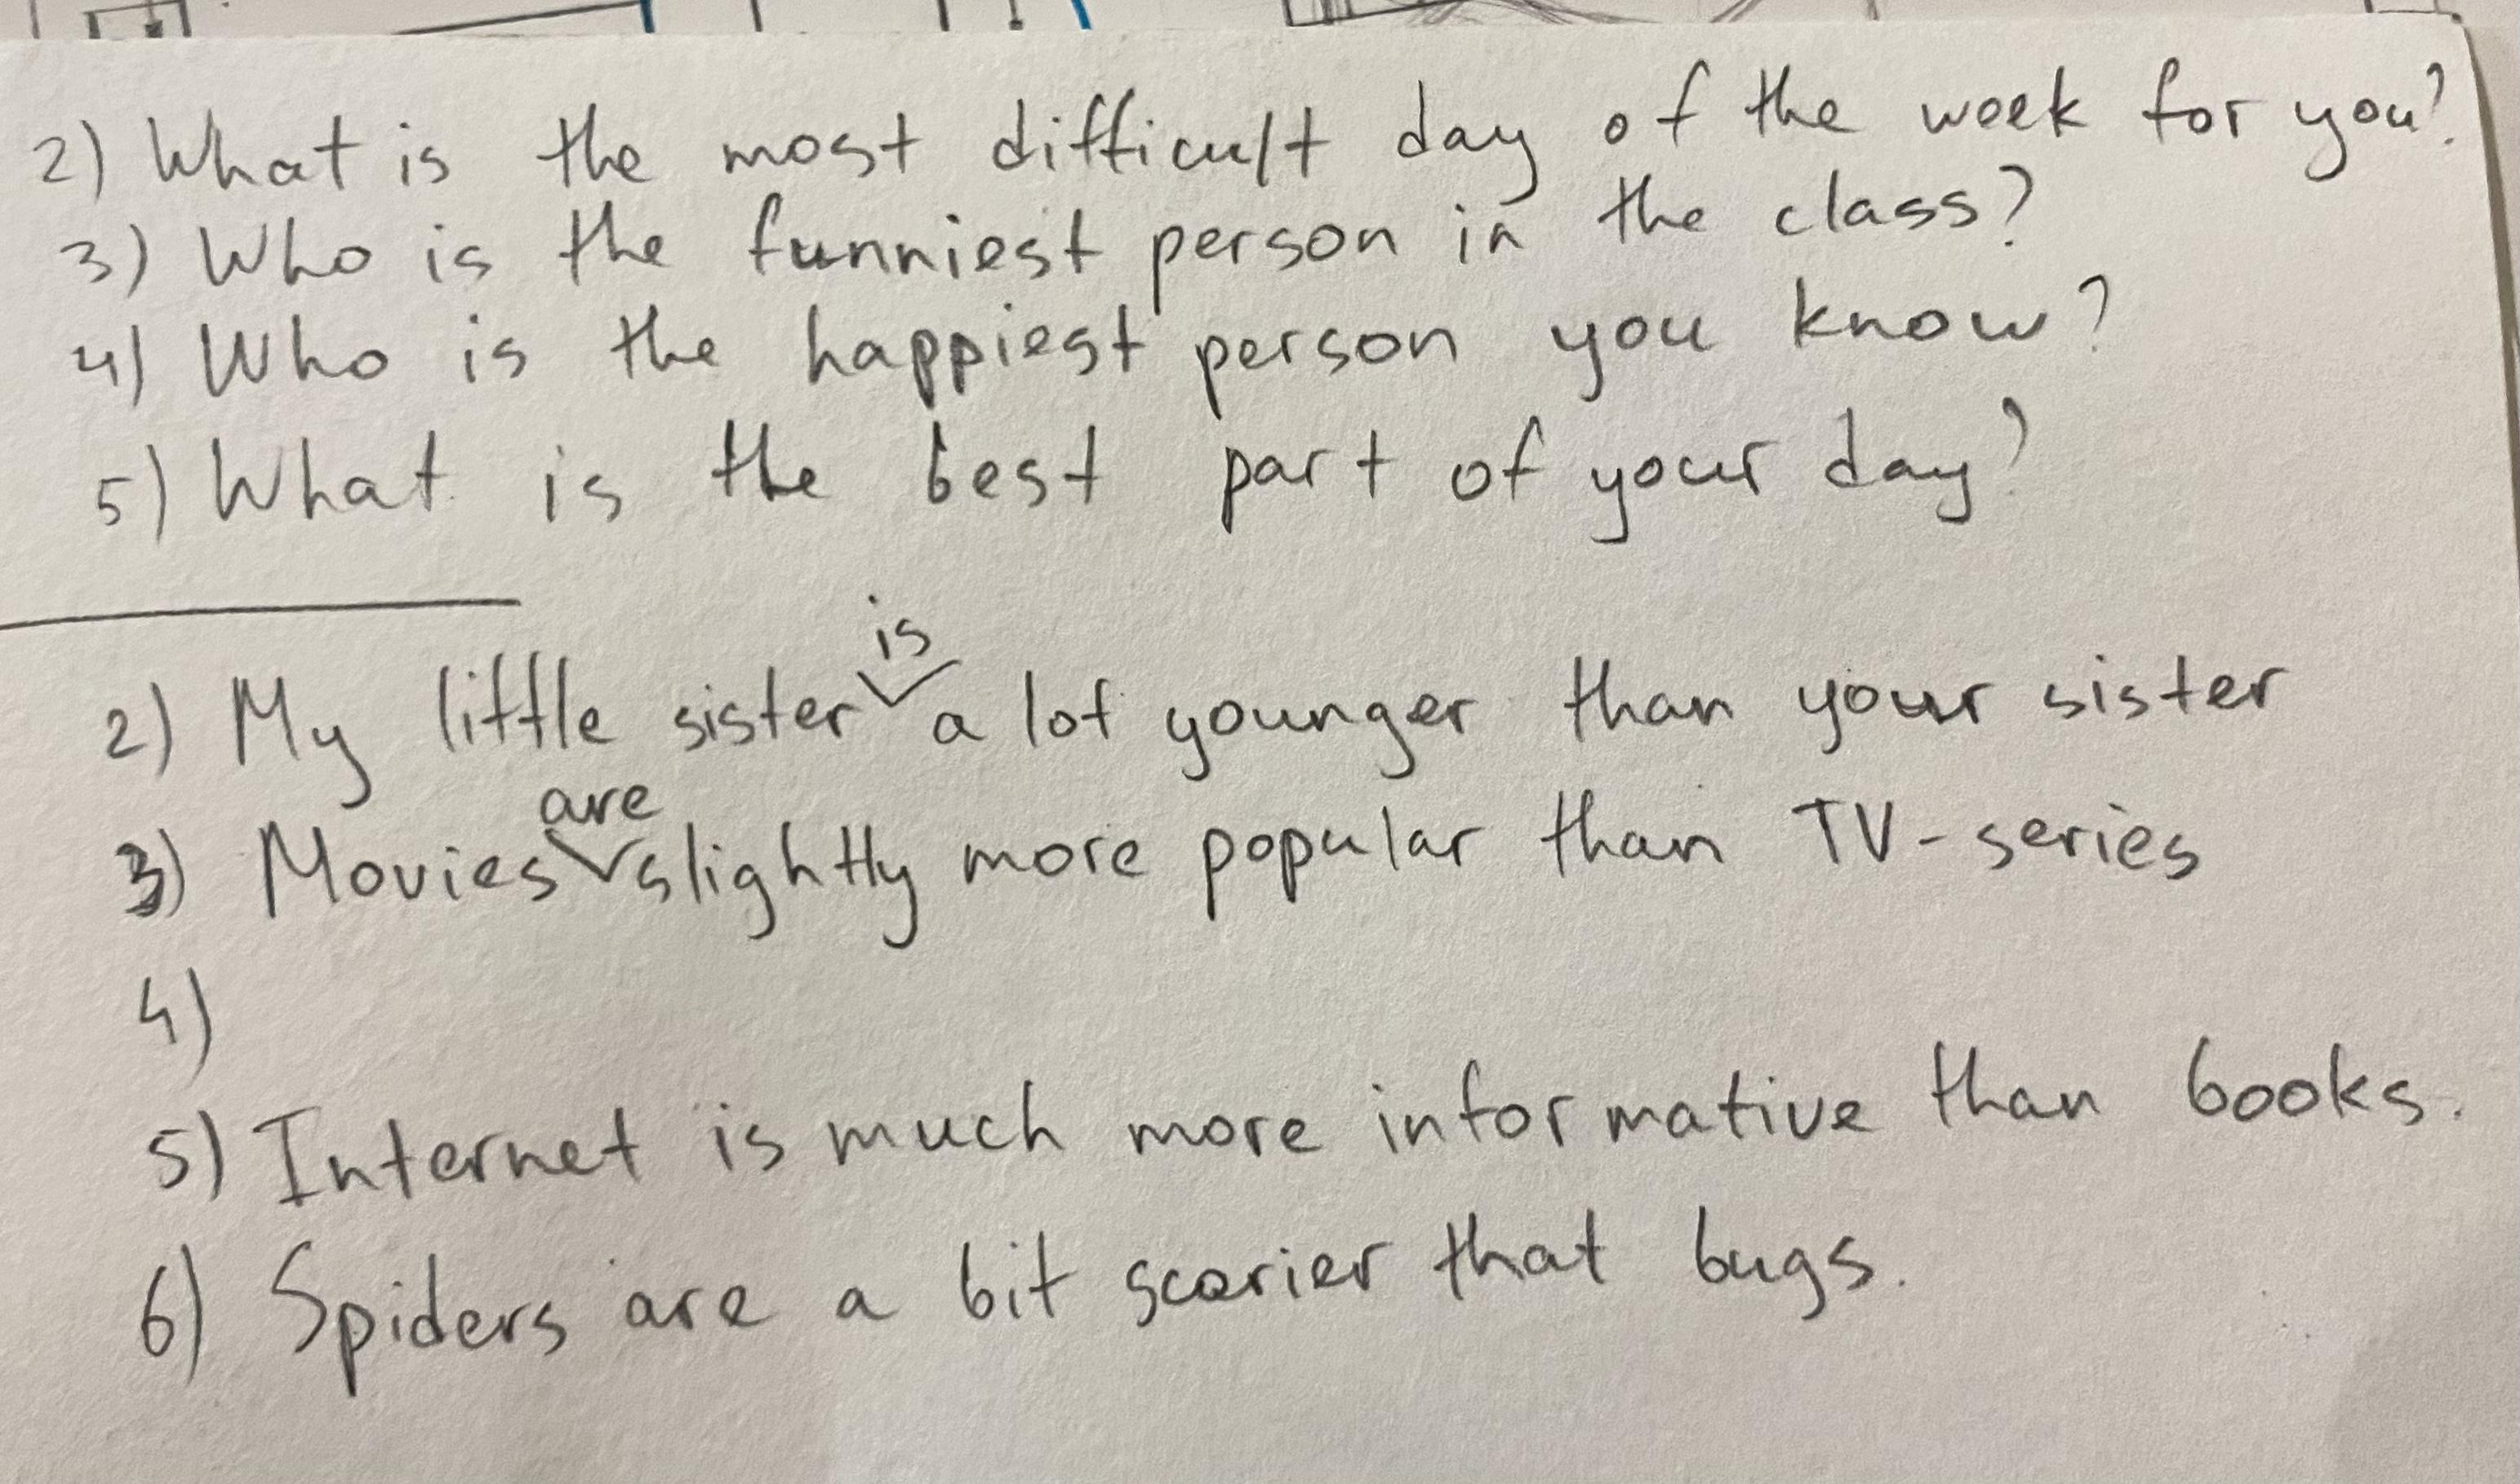 2) What is the most difficult day of the week for you?
3) Who is the funniest person in the class?
4) Who is the happiest person you know?
5) What is the best part of your day?
2) My little sister is a lot younger than your sister
3) Movies are slightly more popular than TV-series
4)
5) Internet is much more informative than books.
6) Spiders are a bit scarier that bugs.